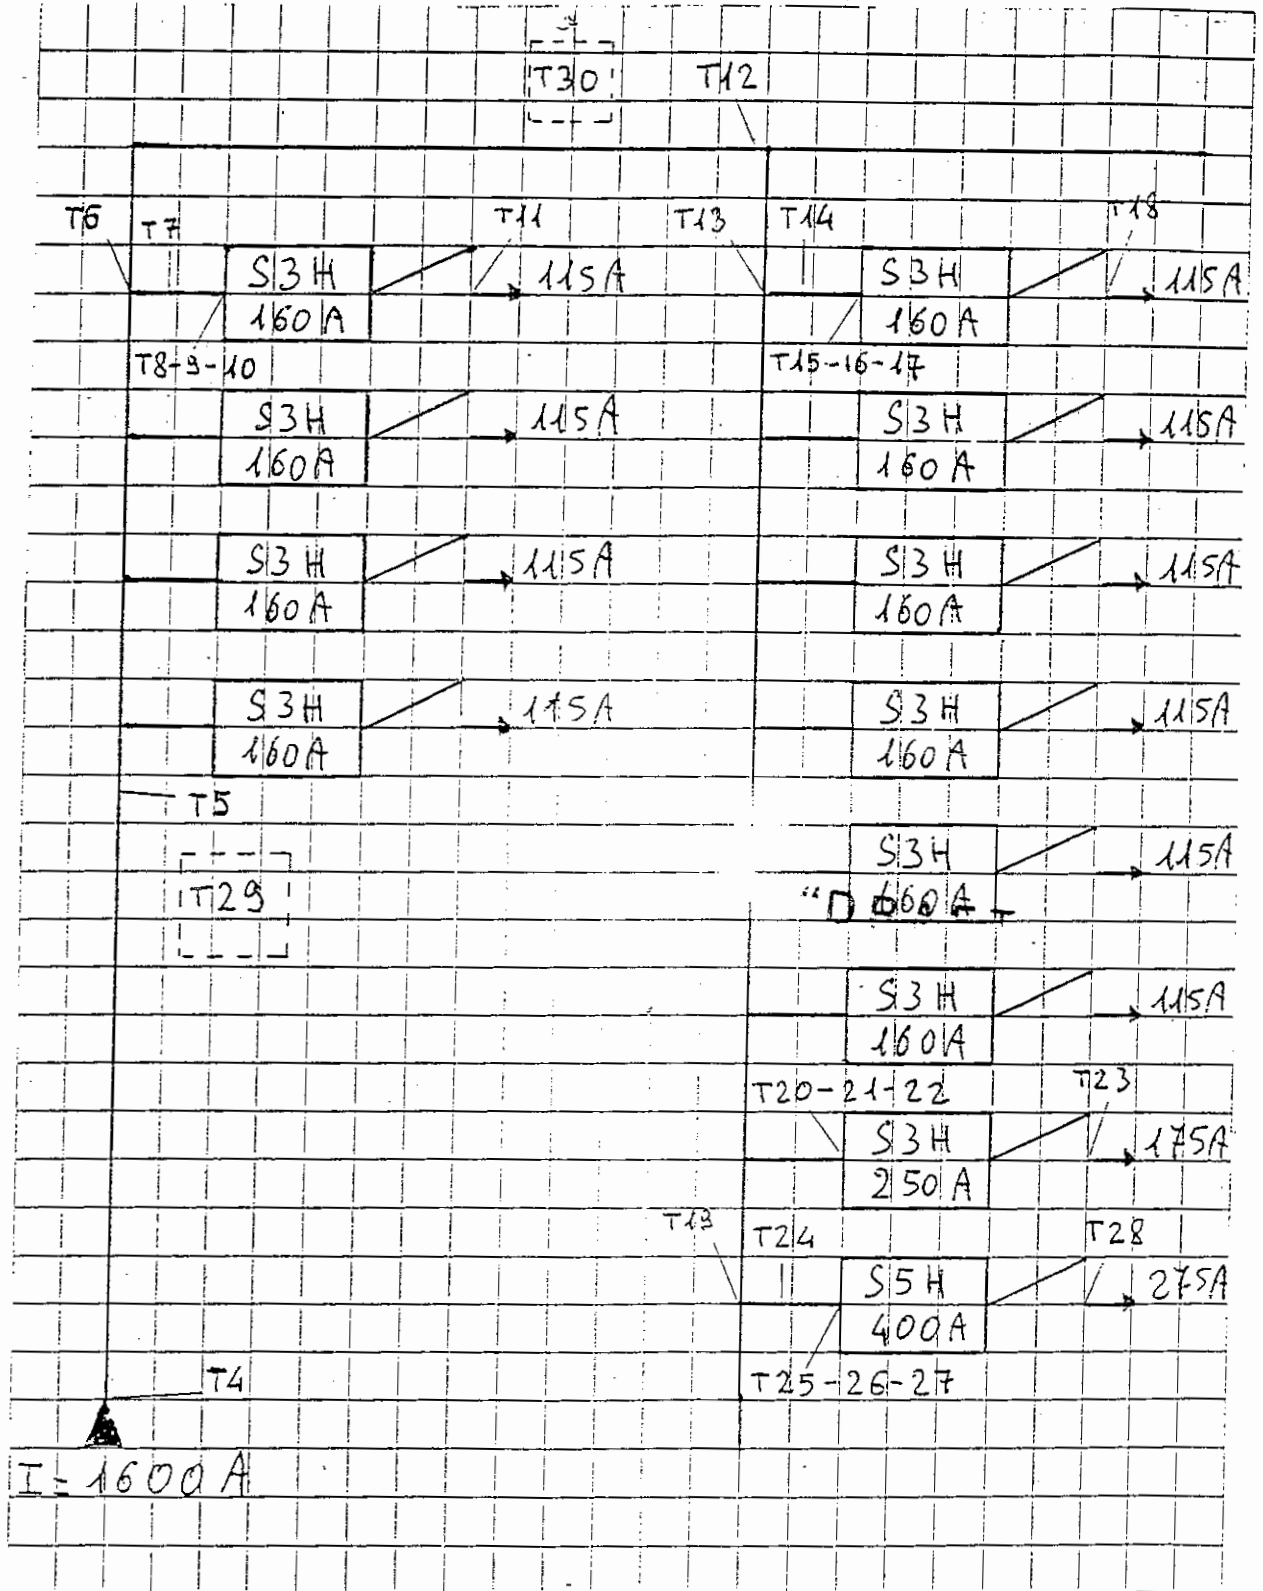 T30
T12
T6
T7
T11
T13
T14
T18
S3H
160A
115A
S3H
160A
115A
T8-9-10
T15-16-17
S3H
160A
115A
S3H
160A
115A
S3H
160A
115A
S3H
160A
115A
S3H
160A
115A
S3H
160A
115A
T5
T29
S3H
160A
115A
S3H
160A
115A
T20-21-22
T23
S3H
250A
175A
T19
T24
T28
S5H
400A
275A
T4
T25-26-27
I=1600A